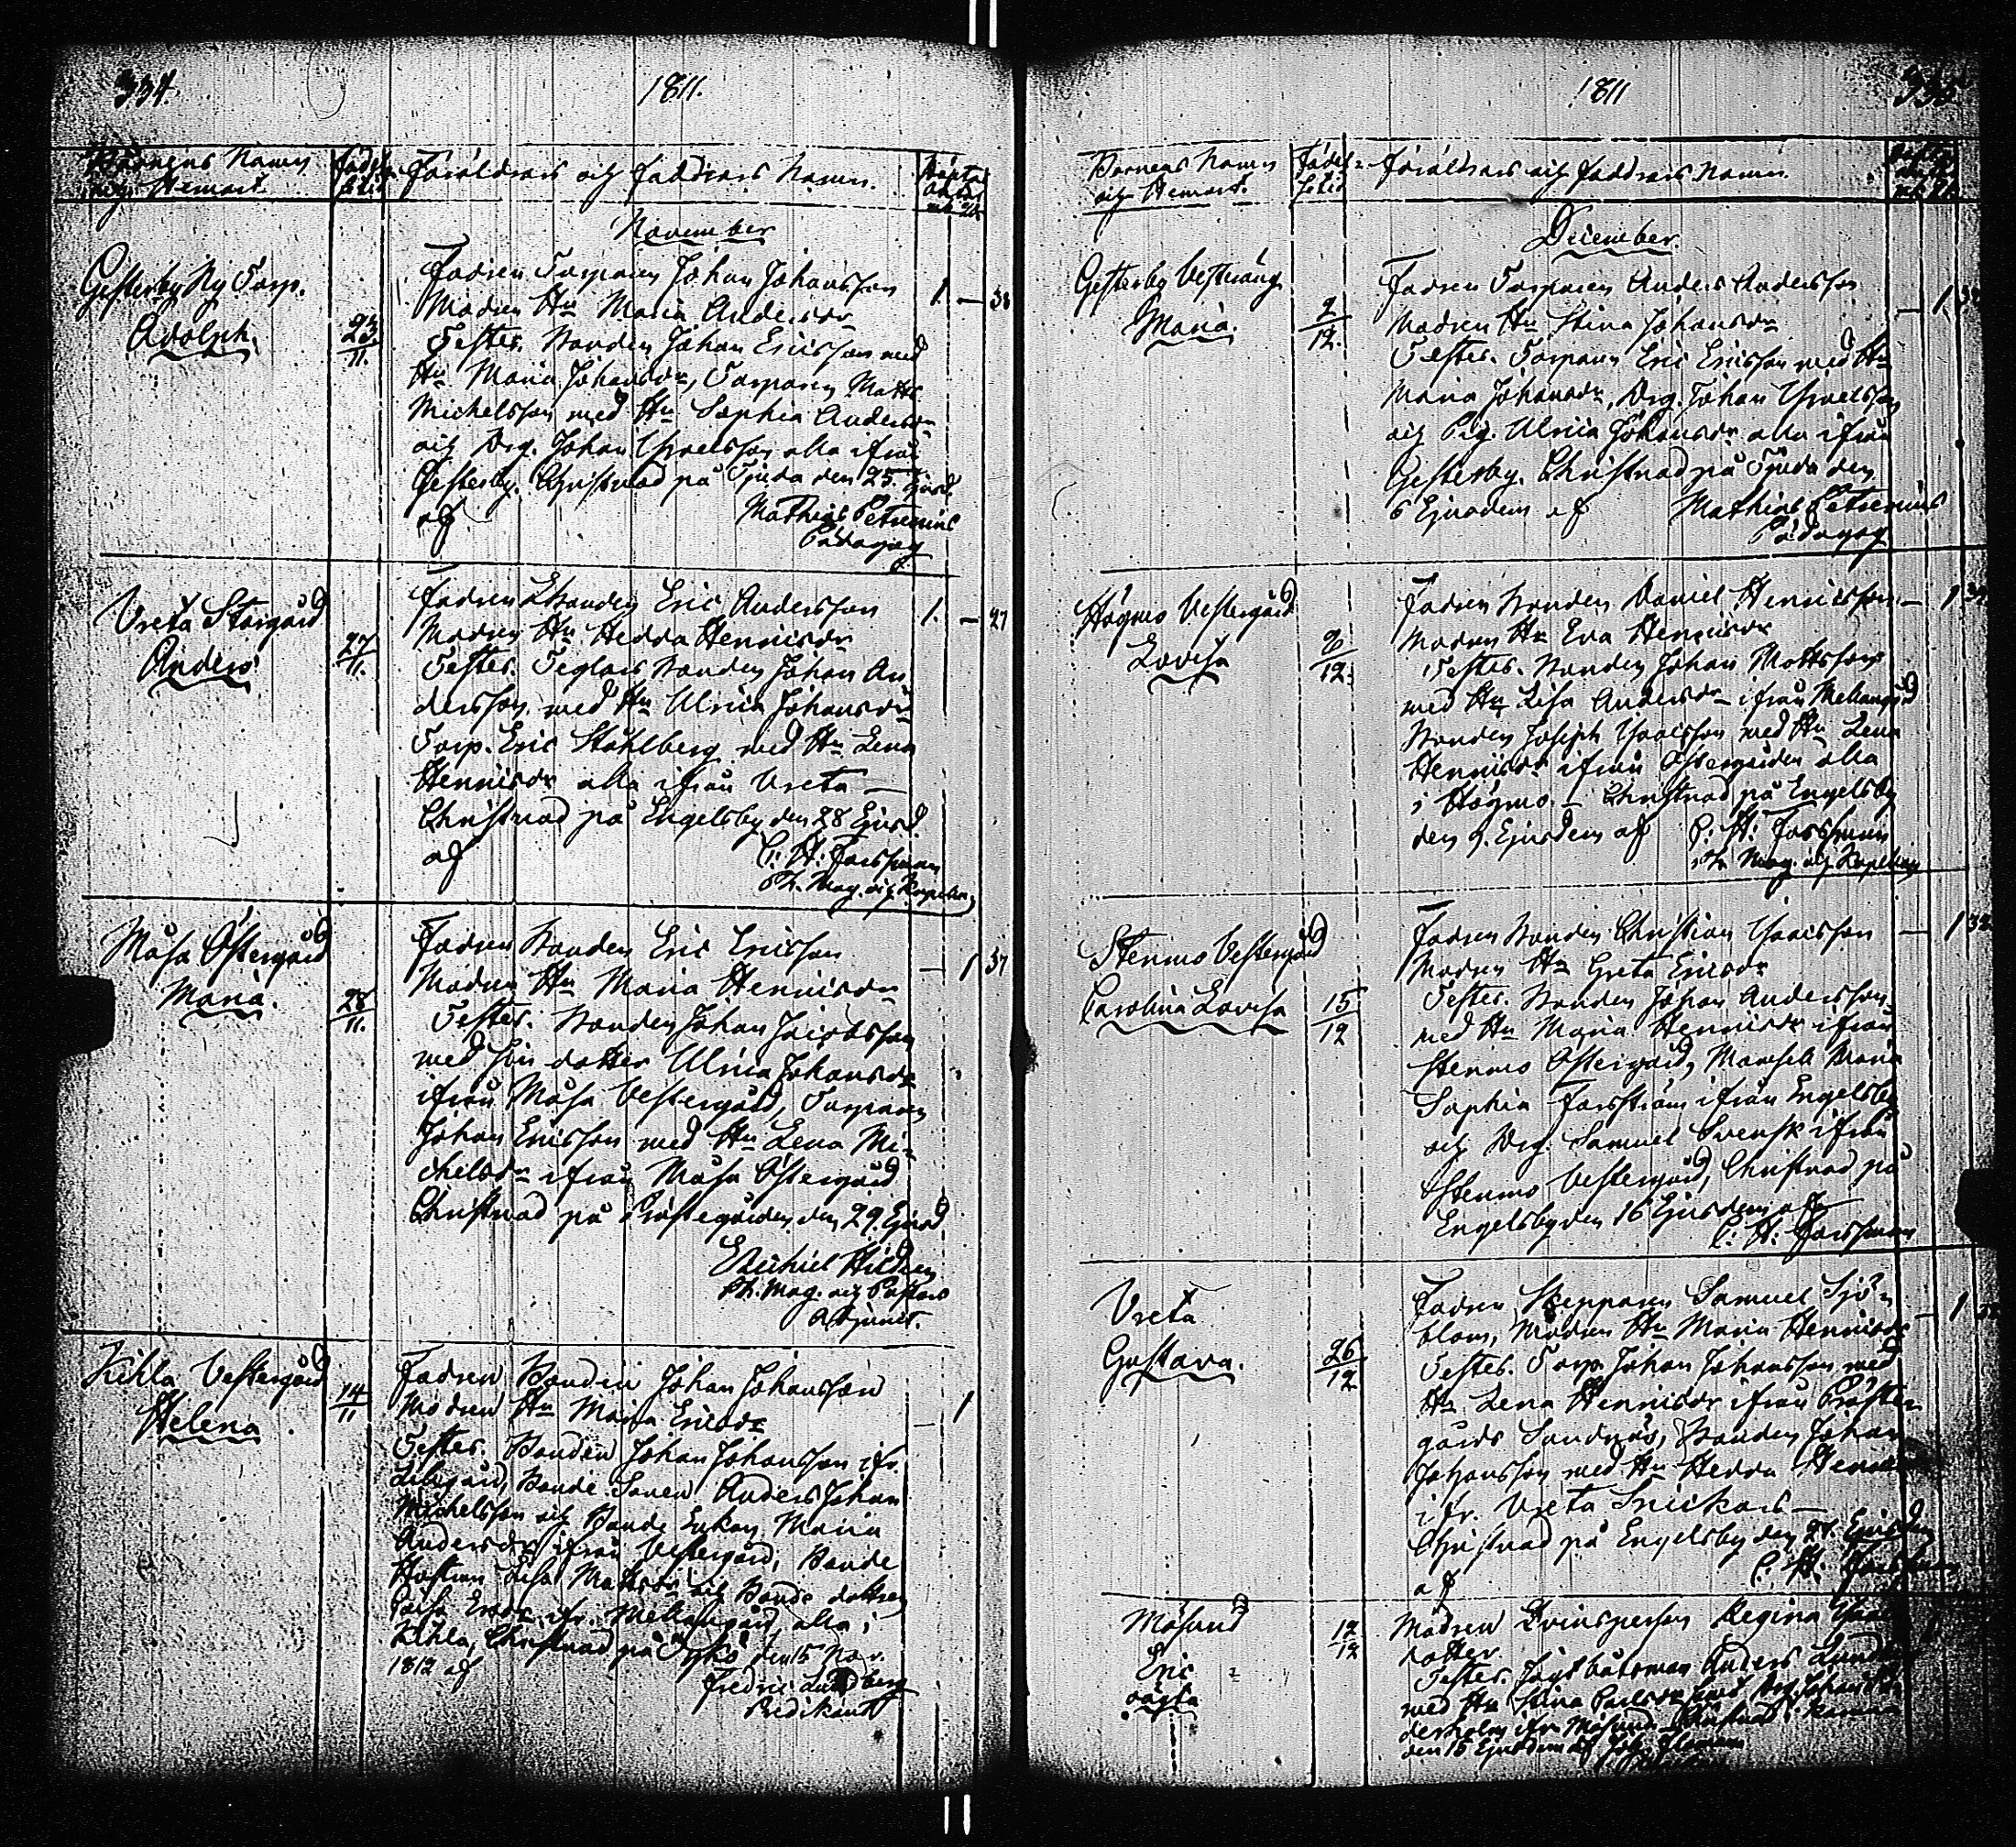 334.
1811.
Barnens Namn
och Hemort.
Födel-
setid
Föräldrars och Faddrars Namn.
November
Gesterby Ny Torp.
Adolph.
23
11.
Fadren Torparen Johan Johansson
Modren Hu Maria Andersdr
Testes. Bonden Johan Ericsson med
Hu Maria Johansdr, Torparen Matts
Michelsson med Hu Sophia Andersdr
och Drg. Johan Israelsson alla ifrån
Gesterby. Christnad på Tjuda den 25. Ejusd.
af Mathias Petrenius
Pædagog
1. — 38
Vreta Storgård
Anders
27
11.
Fadren Bonden Eric Andersson
Modren Hu Hedda Henricsdr
Testes. Bonden Johan An
dersson med Hu Ulrica Johansdr
Torp. Eric Ståhlberg med Hu Lena
Henricsdr alla ifrån Vreta —
Christnad på Engelsby den 28 Ejusd.
af C. H. Forssman
Ph. Mag. och Kapellan
1. — 27
Måsa Östergård
Maria.
28
11.
Fadren Bonden Eric Ericsson
Modren Hu Maria Henricsdr
Testes. Bonden Johan Jacobsson
med sin dotter Ulrica Johansdr
ifrån Måsa Vestergård, Torparen
Johan Ericsson med Hu Lena Mi-
chelsdr ifrån Måsa Östergård
Christnad på Prästegården den 29. Ejusd
Ezechiel Hildeen
Ph. Mag. och Pastors
Adjunct.
— 1 37
Kihla Vestergård
Helena
14
11
Fadren Bonden Johan Johansson
Modren Hu Maria Ericsdr
Testes. Bonden Johan Johansson ifr.
Lillgård, Bonde Sonen Anders Johan
Michelsson och Bonde Enkan Maria
Andersdr ifrån Vestergård, Bonde
Hustrun Lisa Mattsdr och Bonde dottren
Caisa Ersdr ifr. Mellangård, alla i
Kihla, Christnad på Dyskö den 15 Nov.
1812 af
Fredric Lundberg
Predikant
— 1
1811
335
Barnens Namn
och Hemort.
Födel-
setid
Föräldrars och Faddrars Namn.
December.
Gesterby Vestanäng
Maria.
2
12.
Fadren Torparen Anders Andersson
Modren Hu Stina Johansdr
Testes. Torparen Eric Ericsson med Hu
Maria Johansdr, Drg. Johan Israelsson
och Pig. Ulrica Johansdr alla ifrån
Gesterby. Christnad på Tjuda den
6 Ejusdem af Mathias Petrenius
Pædagog
— 1
Högmo Vestergård
Lovisa
6
12.
Fadren Bonden Daniel Henricsson
Modren Hu Eva Henricsdr
Testes. Bonden Johan Mattsson
med Hu Lisa Andersdr ifrån Mellangård
Bonden Joseph Isacsson med Hu Lena
Henricsdr ifrån Östergården alla
i Högmo — Christnad på Engelsby
den 9. Ejusdem af C. H. Forssman
Ph. Mag. och Kapellan
— 1
Stenmo Vestergård
Carolina Lovisa
15
12
Fadren Bonden Christian Isacsson
Modren Hu Greta Ericsdr
Testes. Bonden Johan Andersson
med Hu Maria Henricsdr ifrån
Stenmo Östergård, Mamsell Maria
Sophia Forsström ifrån Engelsby
och Drg. Samuel Svensk ifrån
Stenmo Vestergård, Christnad på
Engelsby den 16 Ejusdem af
C. H. Forssman
— 1
Vreta
Gustava.
26
12
Fadren Skepparen Samuel Sjö-
blom, Modren Hu Maria Henricsdr
Testes. Torp. Johan Johansson med
Hu Lena Henricsdr ifrån Präste-
gårds Sandnäs, Bonden Johan
Johansson med Hu Hedda
ifr. Vreta Snickars —
Christnad på Engelsby den Ejusdem
af C. H. Forssman
— 1
Mösund
Eric
oägta
12
12
Modren Qvinsperson Regina
dotter.
Testes. Jagtbåtsman Anders
med Hu Stina Carlsdr
ifr. Mösund Christnad i
den 15 Ejusdem af